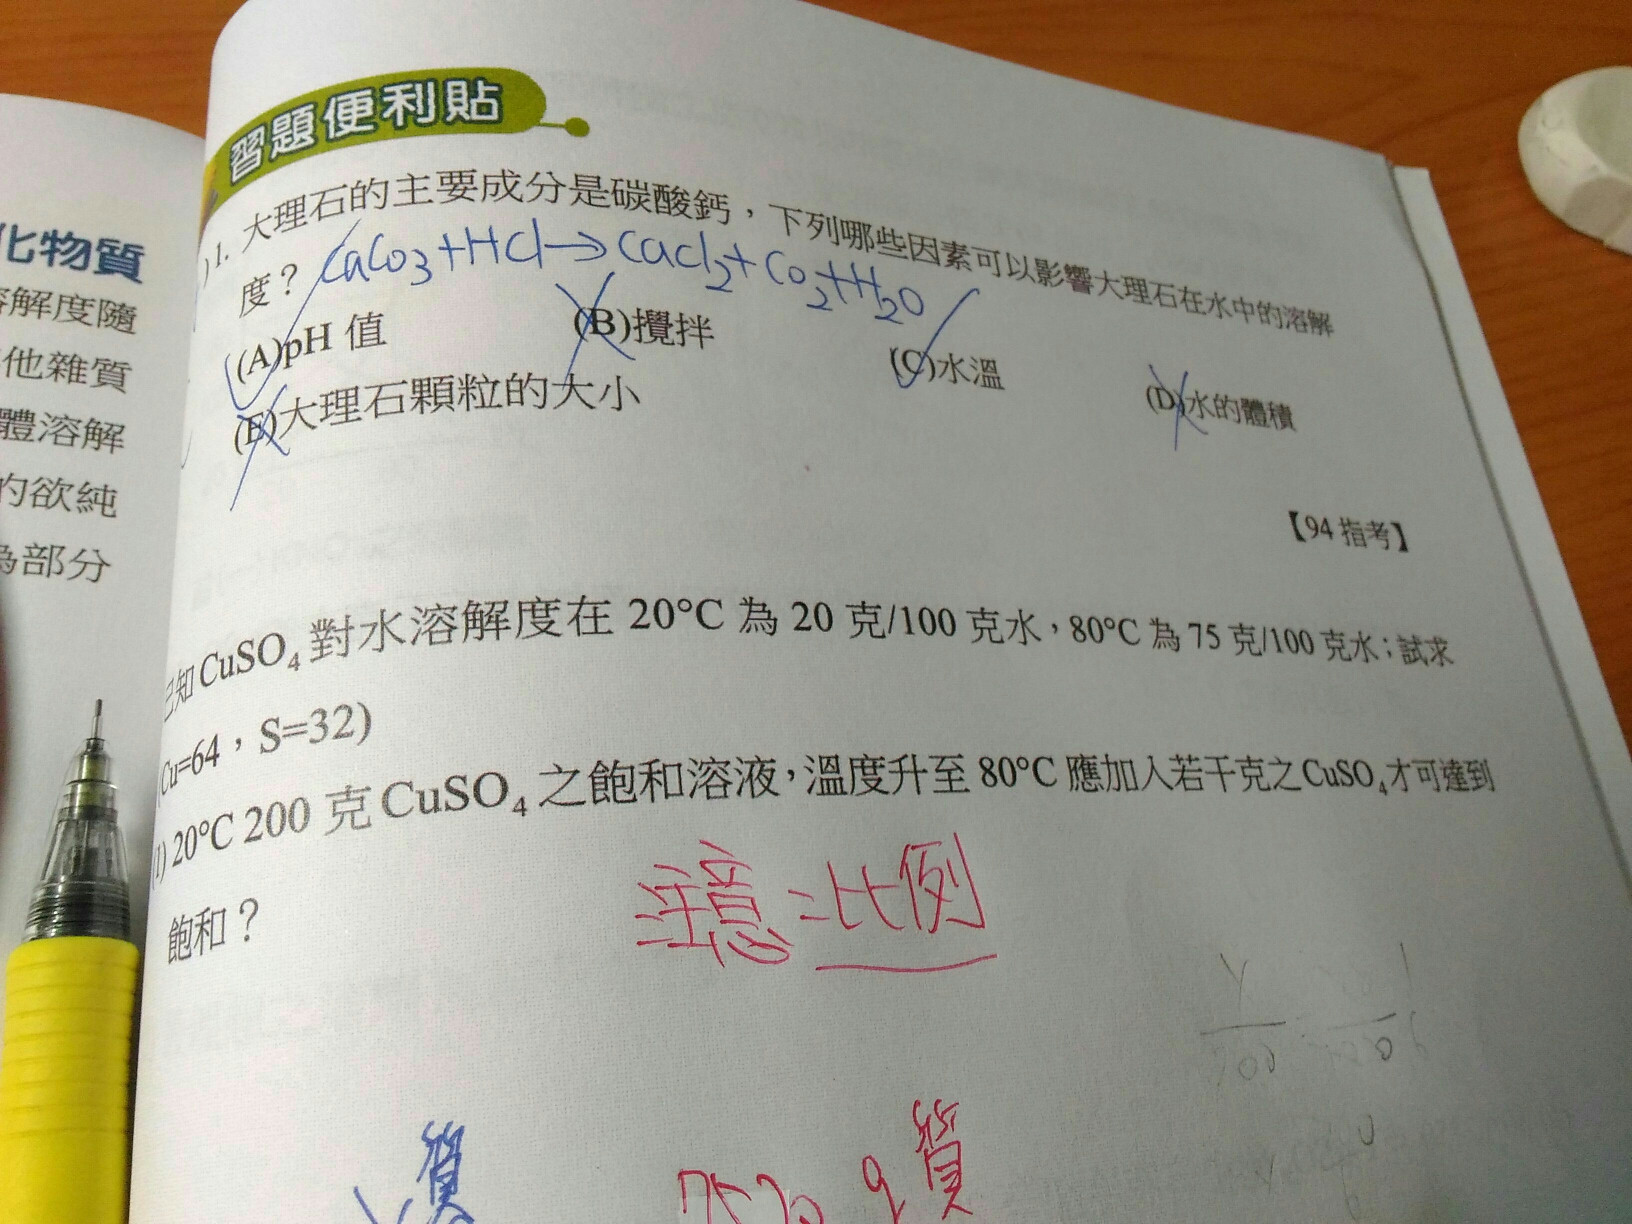 習題便利貼
化物質
溶解度隨
他雜質
體溶解
的欲純
為部分
)1. 大理石的主要成分是碳酸鈣，下列哪些因素可以影響大理石在水中的溶解
度？ CaCO3+HCl→CaCl2+CO2+H2O
(A)pH 值 (B)攪拌 (C)水溫 (D)水的體積
(E)大理石顆粒的大小
【94 指考】
已知CuSO₄對水溶解度在 20°C 為 20 克/100 克水，80°C 為 75 克/100 克水；試求
(Cu=64，S=32)
(1) 20°C 200 克CuSO₄之飽和溶液，溫度升至 80°C 應加入若干克之CuSO₄才可達到
飽和？
注意：比例
質
質